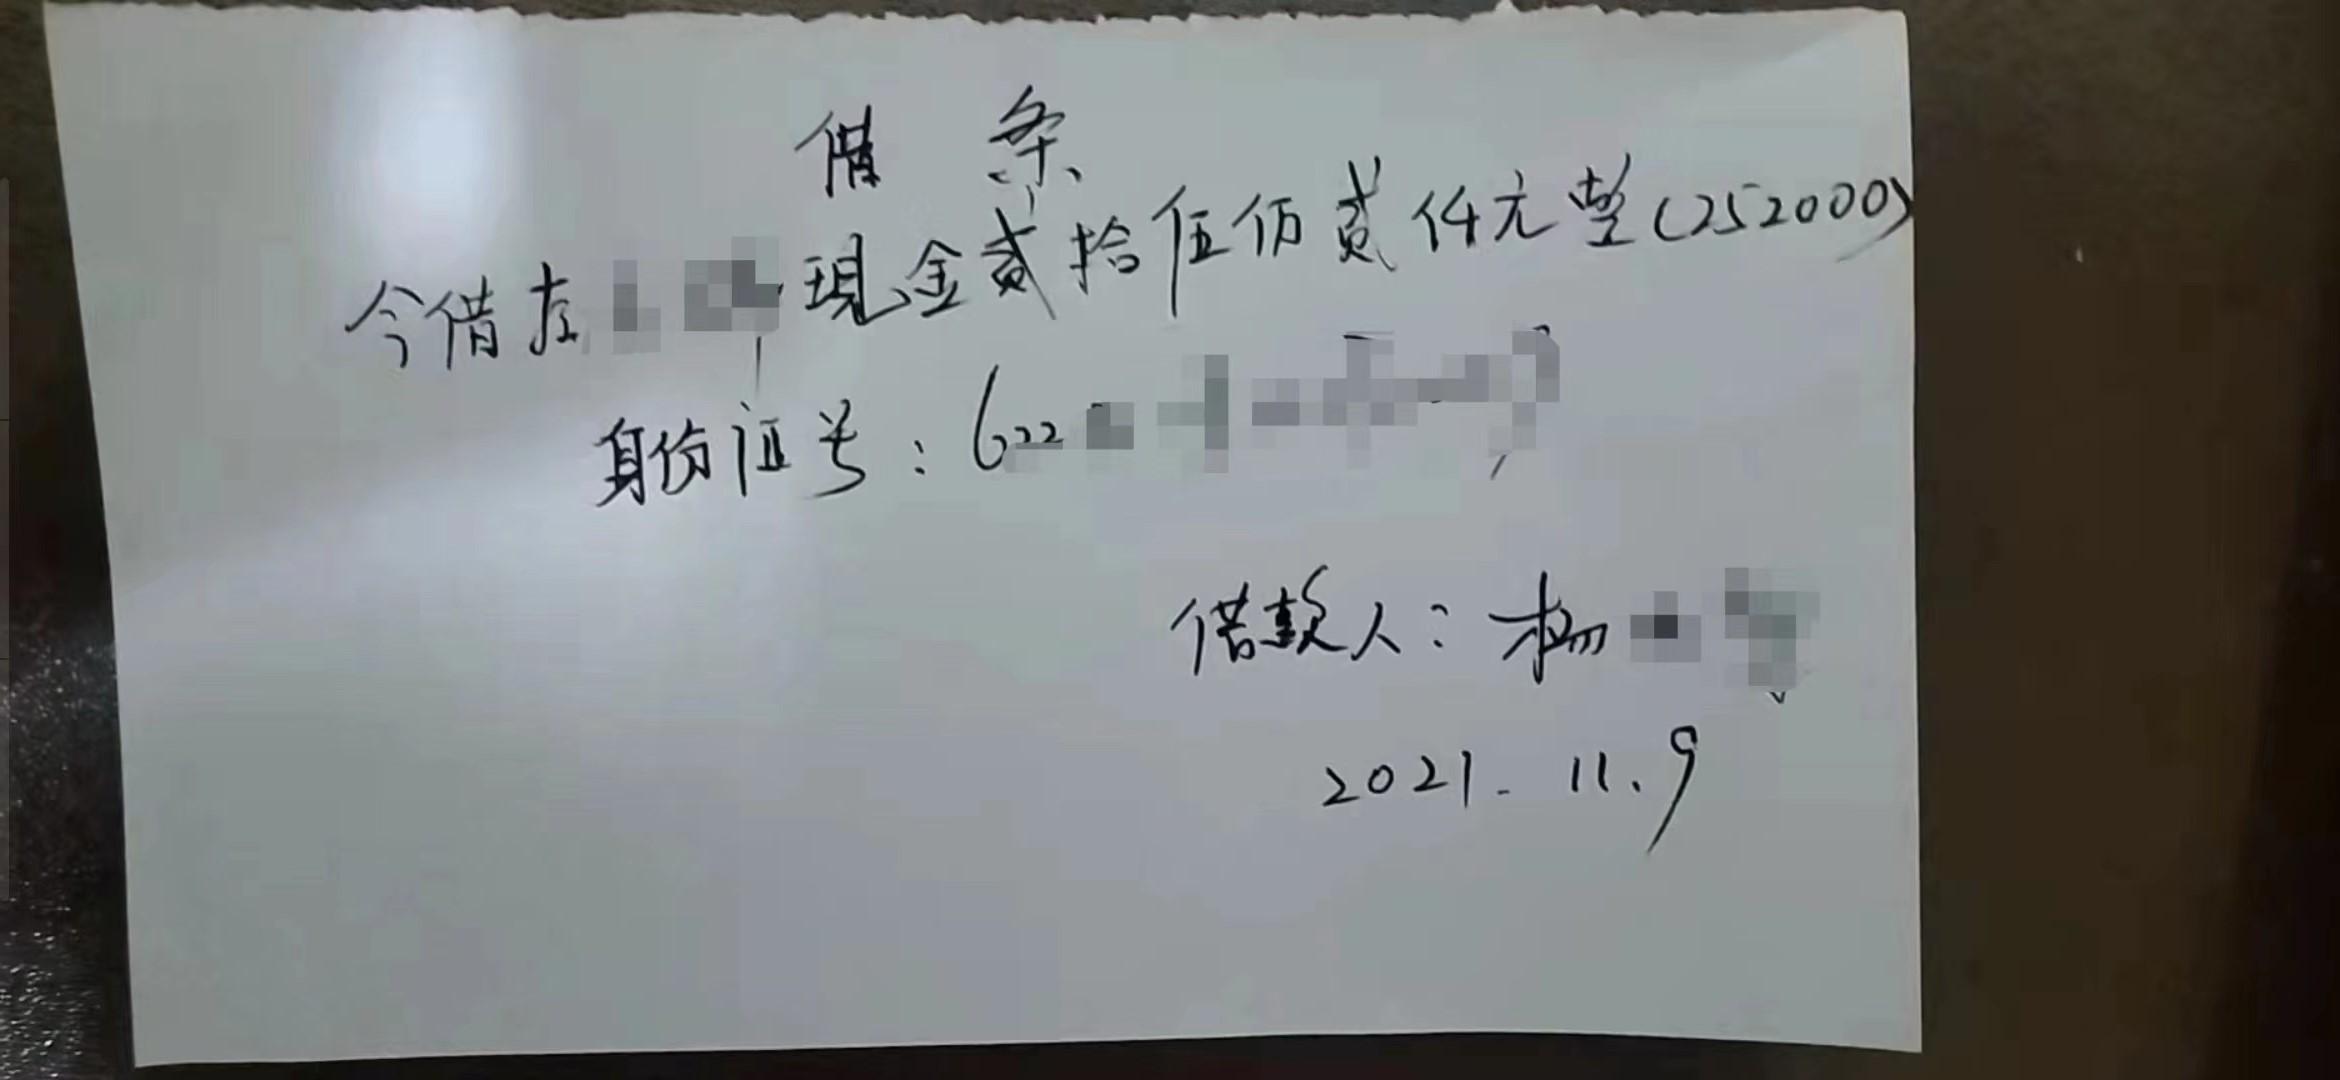 借 条
今借左 现金贰拾伍仿贰仟元整(252000)
身份证号:622
借款人:杨
2021.11.9